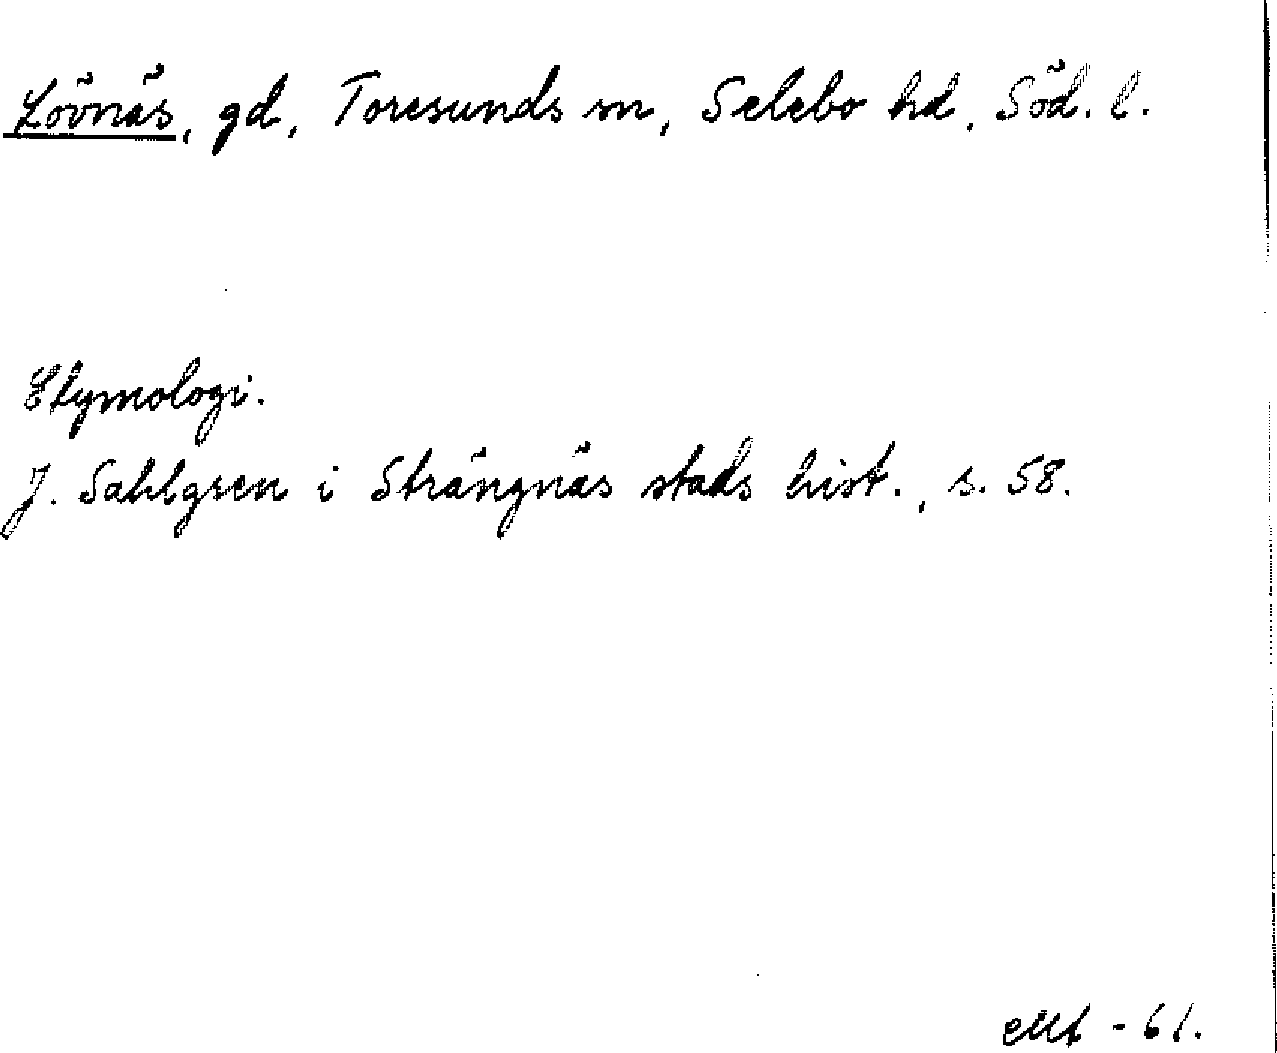 Lövnäs, gd, Toresunds sn, Selebo hd, Söd. l.
Etymologi.
J. Sahlgren i Strängnäs stads hist., s. 58.
-61.